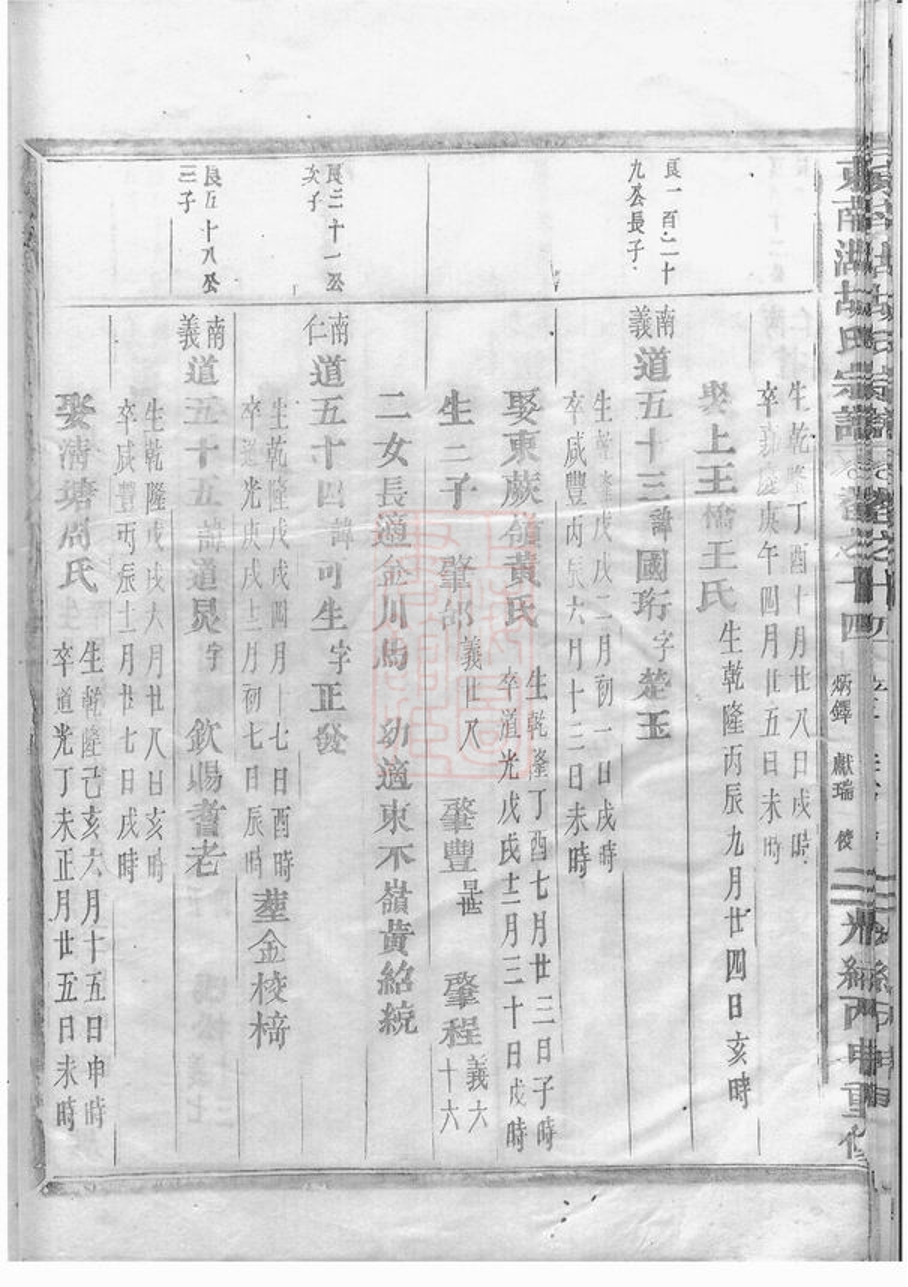 東南湖胡氏宗譜
十四
炳鐸 獻瑞 俊
光緒丙申重修
生乾隆丁酉十月廿八日戌時
卒嘉慶庚午四月廿五日未時
娶上王橋王氏
生乾隆丙辰九月廿四日亥時
良一百二十
九公長子
南義
道五十三諱國珩字楚玉
生乾隆戊戌二月初一日戌時
卒咸豐丙辰六月十二日未時
娶東蕨嶺黃氏
生乾隆丁酉七月廿二日子時
卒道光戊戌十二月三十日戌時
生三子 肇部義廿八 肇豐早世 肇程義六十六
二女長適金川馬 幼適東不嶺黃紹統
良三十一公
次子
南仁
道五十四諱可生字正發
生乾隆戊戌四月十七日酉時
卒道光庚戌十二月初七日辰時
葬金校椅
良五十八公
三子
南義
道五十五諱道炅字 欽賜耆老
生乾隆戊戌六月廿八日亥時
卒咸豐丙辰十二月廿七日戌時
娶清塘周氏
生乾隆己亥六月十五日申時
卒道光丁未正月廿五日未時